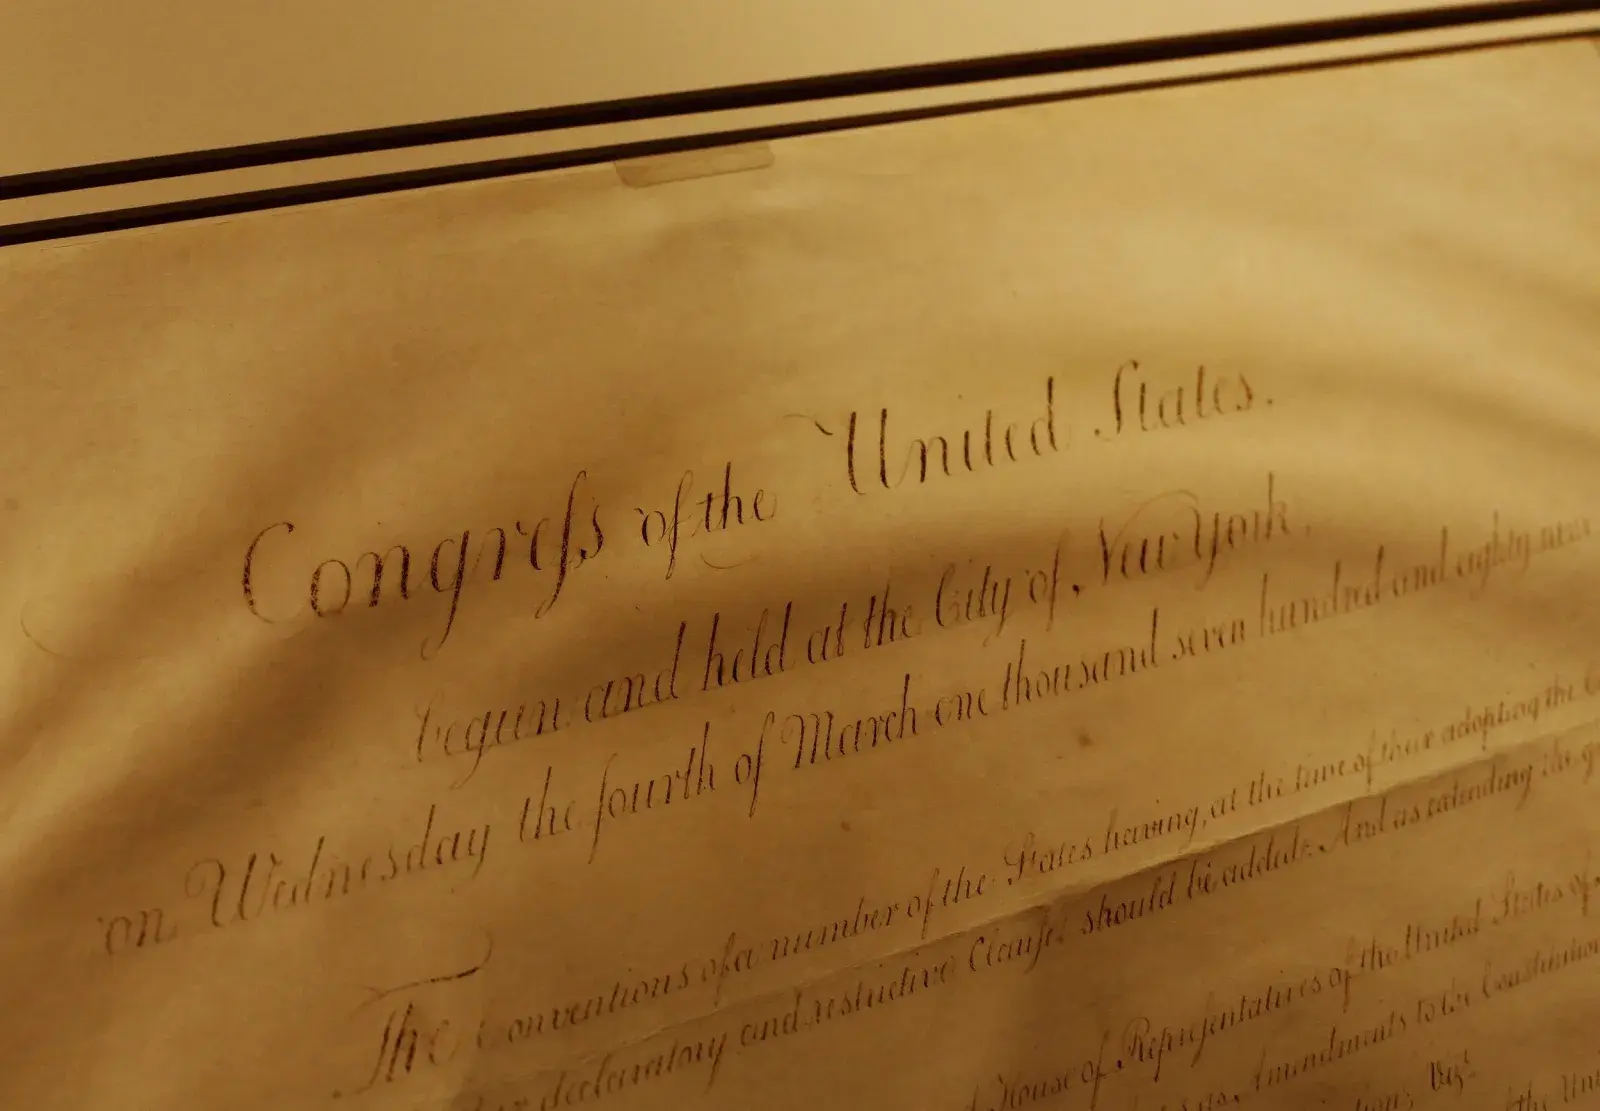 Congreſs of the United States.
begun and held at the City of New York,
on Wednesday the fourth of March one thousand seven hundred and eighty nine
The Conventions of a number of the States having, at the time of their adopting the
declaratory and restrictive Clauses should be added: And as extending the
House of Representatives of the United States of
Amendments to the Constitution
Vizt.
the